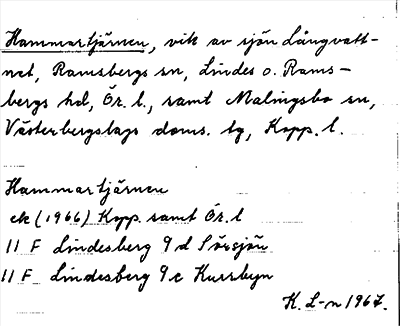 Hammartjärnen, vik av sjön Långvatt-
net, Ramsbergs sn, Lindes o. Rams-
bergs hd, Ör. l., samt Malingsbo sn,
Västerbergslags doms. tg, Kopp. l.
Hammartjärnen
ek (1966) Kopp. samt Ör. l
11 F Lindesberg 9 d Sörsjön
11 F Lindesberg 9 c Kurrbyn
K. L-n 1967.